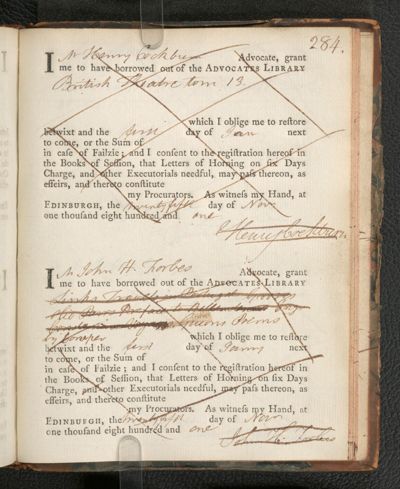 284.
I Mr Henry Cockburn Advocate, grant
me to have borrowed out of the ADVOCATES LIBRARY
British Theatre tom 13.
which I oblige me to reſtore
betwixt and the first day of Jan next
to come, or the Sum of
in caſe of Failzie; and I conſent to the regiſtration hereof in
the Books of Seſſion, that Letters of Horning on ſix Days
Charge, and other Executorials needful, may paſs thereon, as
effeirs, and thereto conſtitute
my Procurators. As witneſs my Hand, at
EDINBURGH, the twenty fifth day of Nov
one thouſand eight hundred and one
Henry Cockburn
I Mr John H. Forbes Advocate, grant
me to have borrowed out of the ADVOCATES LIBRARY
Poems
by Cowper which I oblige me to reſtore
betwixt and the first day of Jany next
to come, or the Sum of
in caſe of Failzie; and I conſent to the regiſtration hereof in
the Books of Seſſion, that Letters of Horning on ſix Days
Charge, and other Executorials needful, may paſs thereon, as
effeirs, and thereto conſtitute
my Procurators. As witneſs my Hand, at
EDINBURGH, the twenty fifth day of Nov
one thouſand eight hundred and one
John H. Forbes